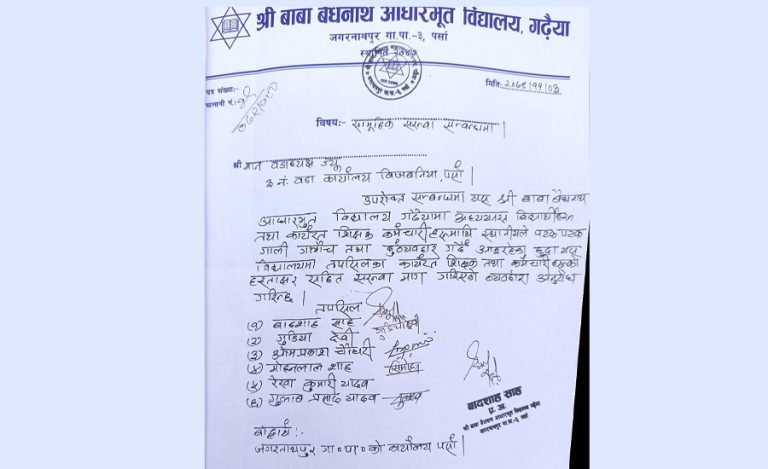 श्री बाबा बैधनाथ आधारभूत विद्यालय, गढ़ैया
जगरनाथपुर गा.पा.-३, पर्सा
स्थापित २०४७
पत्र संख्या:-
चलानी नं.:-
मिति: २०७९/११/०३
विषय:- सामूहिक सरुवा सम्बन्धमा।
श्री मान वडाध्यक्ष ज्यू
३ नं. वडा कार्यालय बिजबनिया, पर्सा।
उपरोक्त सम्बन्धमा यस श्री बाबा बैधनाथ
आधारभूत विद्यालय गढैयामा अध्ययनरत विद्यार्थीहरु
तथा कार्यरत शिक्षक कर्मचारीहरुमाथि स्थानीयले पटक पटक
गाली गलौच तथा दुर्व्यवहार गर्दै आइरहेका हुदा यस
विद्यालयमा तपसिलका कार्यरत शिक्षक तथा कर्मचारीहरुको
हस्ताक्षर सहित सरुवा माग गरिएको व्यहोरा अनुरोध
गरिन्छ।
तपसिल
(१) बादशाह साह
(२) गुडिया देवी
(३) ओमप्रकाश चौधरी
(४) मोहनलाल शाह
(५) रेखा कुमारी यादव
(६) गुलाब प्रसाद यादव
बादशाह साह
प्र. अ.
श्री बाबा बैधनाथ आधारभूत विद्यालय गढैया
जगरनाथपुर गा.पा.-३, पर्सा
बोधार्थ:-
जगरनाथपुर गा०पा० को कार्यालय पर्सा।